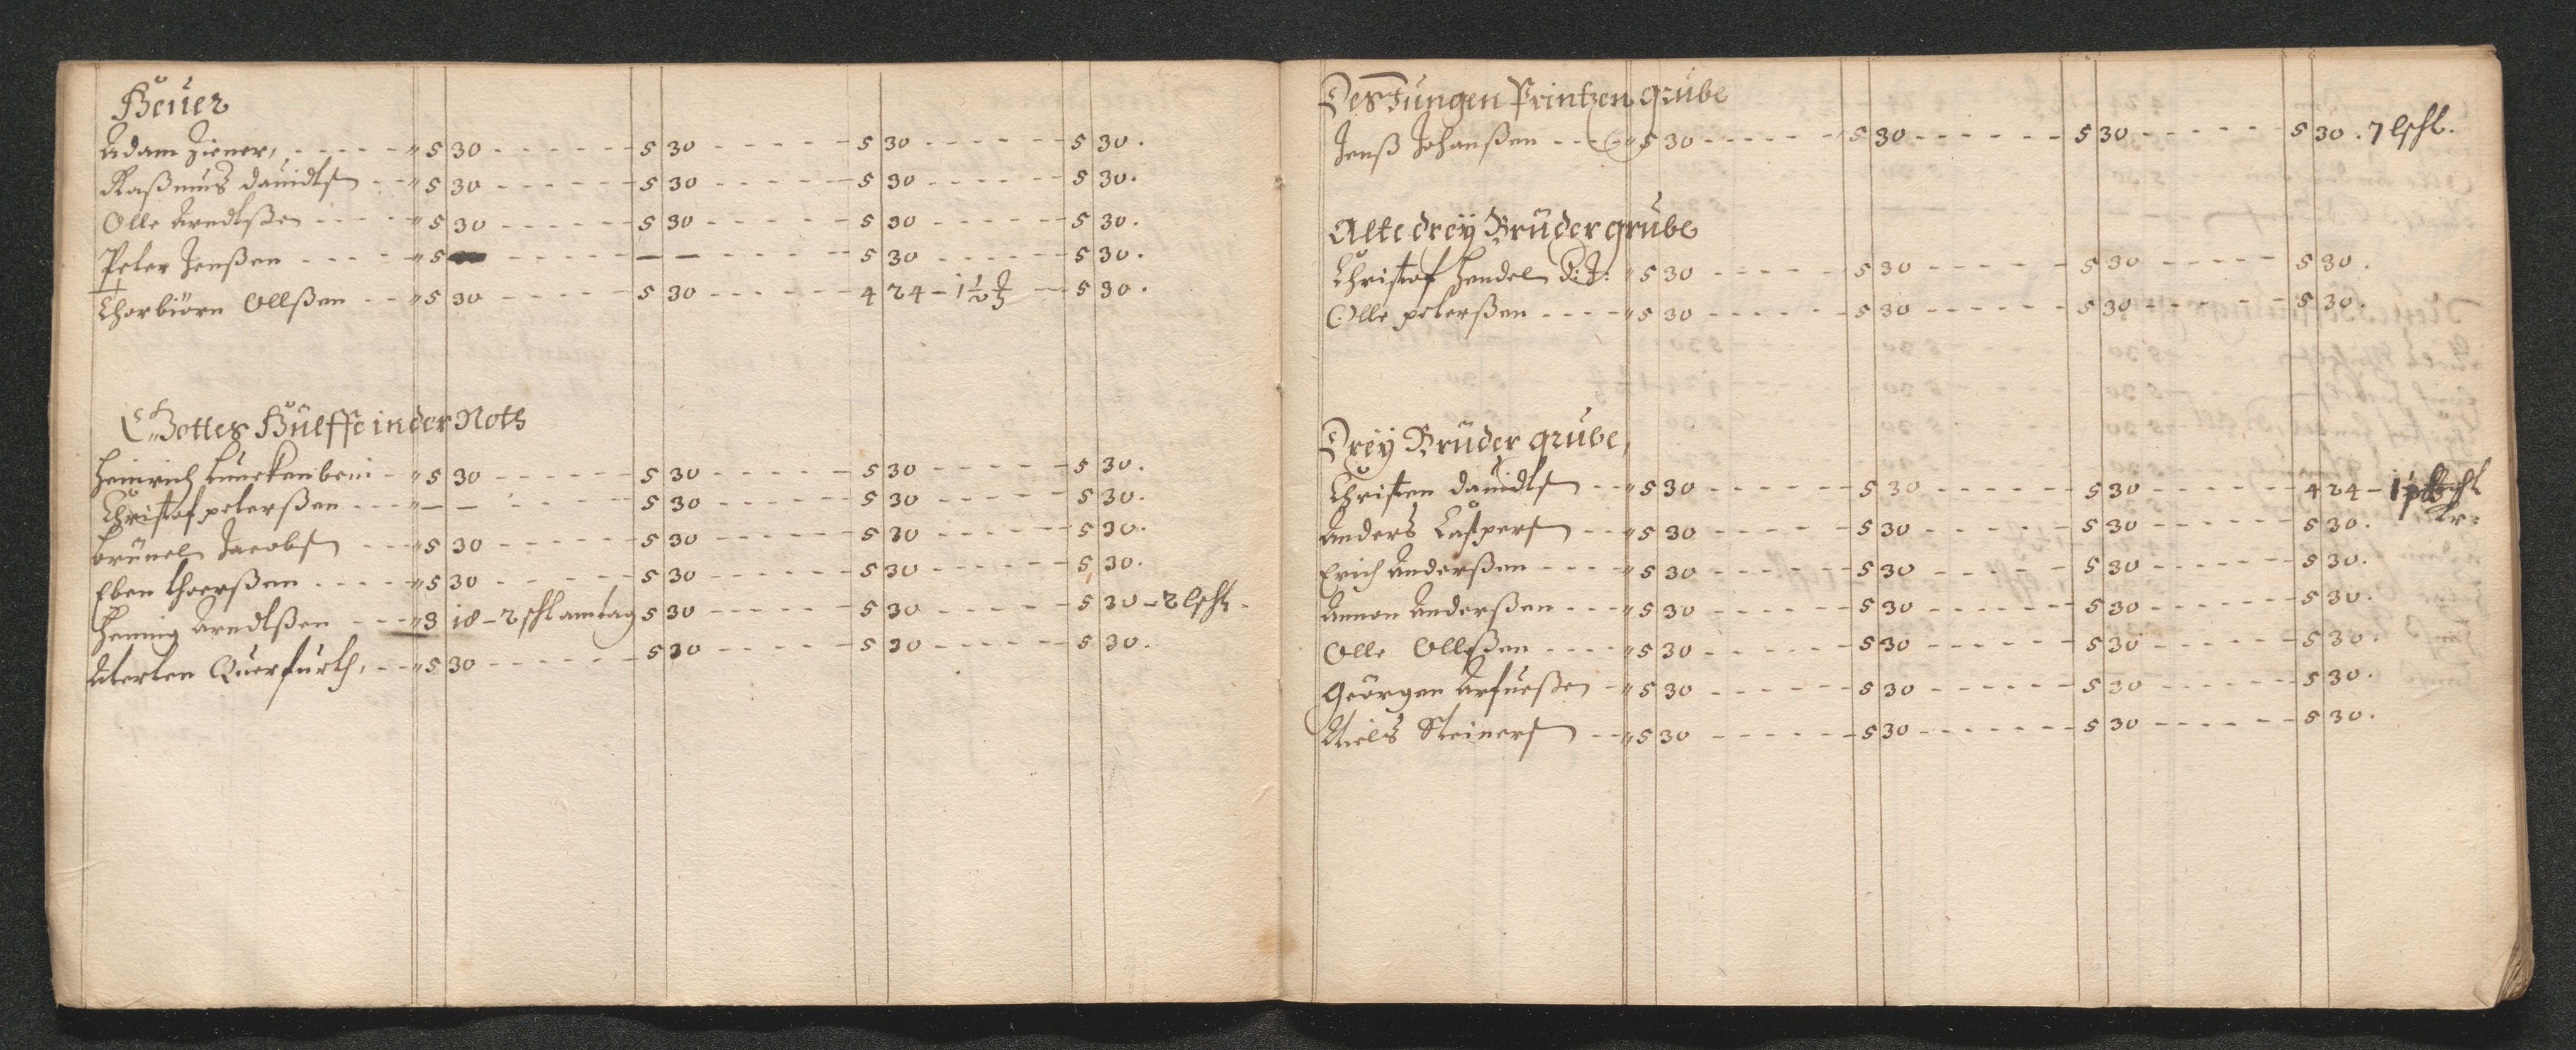 Heüer
Adam Ziener, - - - - - " 5 30 - - - - - - 5 30 - - - - - - 5 30 - - - - - - 5 30.
Raßmus Dauidtß - - " 5 30 - - - - - - 5 30 - - - - - - 5 30 - - - - - - 5 30.
Olle Arndtßen - - - - " 5 30 - - - - - - 5 30 - - - - - - 5 30 - - - - - - 5 30.
Peter Jenßen - - - - " 5 - - - - - - — — - - - - - - 5 30 - - - - - - 5 30.
Thorbiörn Ollßen - - " 5 30 - - - - - - 5 30 - - - - - - 4 24 - 1½ - - 5 30.
Gottes Hülffe in der Noth
Heinrich Lunckenbein - " 5 30 - - - - - - 5 30 - - - - - - 5 30 - - - - - - 5 30.
Christof peterßen - - - " — — - - - 5 30 - - - - - - 5 30 - - - - - - 5 30.
Brünel Jacobß - - - " 5 30 - - - - - - 5 30 - - - - - - 5 30 - - - - - - 5 30.
Eben Thorßen - - - - " 5 30 - - - - - - 5 30 - - - - - - 5 30 - - - - - - 5 30.
Henning Arndtßen - - - " 3 18 - 2 schl am tag 5 30 - - - - - - 5 30 - - - - - - 5 30 - 2 lschl.
Merten Querfurth, - - " 5 30 - - - - - - 5 30 - - - - - - 5 30 - - - - - - 5 30.
Des Jungen Printzen grube
Jenß Johanßen - - - " 5 30 - - - - - - 5 30 - - - - - - 5 30 - - - - - - 5 30. 7 lschl.
Alte dreÿ Brüder grube
Christof Hendel d: J: " 5 30 - - - - - - 5 30 - - - - - - 5 30 - - - - - - 5 30.
Olle peterßen - - - - " 5 30 - - - - - - 5 30 - - - - - - 5 30 - - - - - - 5 30.
Dreÿ Brüder grube,
Christen Dauidtß - - " 5 30 - - - - - - 5 30 - - - - - - 5 30 - - - - - - 4 24 -
Anders Casperß - - " 5 30 - - - - - - 5 30 - - - - - - 5 30 - - - - - - 5 30.
Erich Anderßen - - - - " 5 30 - - - - - - 5 30 - - - - - - 5 30 - - - - - - 5 30.
Amon Anderßen - - - " 5 30 - - - - - - 5 30 - - - - - - 5 30 - - - - - - 5 30.
Olle Ollßen - - - - " 5 30 - - - - - - 5 30 - - - - - - 5 30 - - - - - - 5 30.
Geörgen Arfueßen - " 5 30 - - - - - - 5 30 - - - - - - 5 30 - - - - - - 5 30.
Niels Steinerß - - " 5 30 - - - - - - 5 30 - - - - - - 5 30 - - - - - - 5 30.